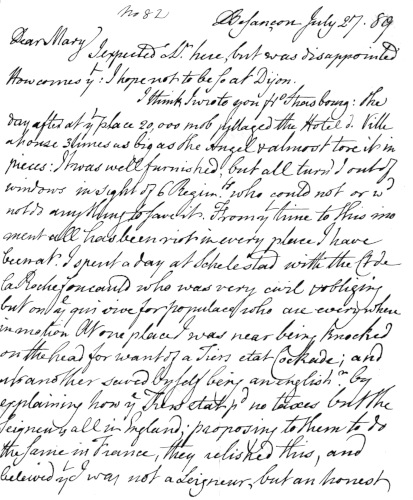 No 82
Besançon July 27. 89
Dear Mary
I expected a Lr. here, but was disappointed
How comes yt: I hope not to be so at Dijon.
I think I wrote you fro Strasbourg: the
day after at yt place 20,000 mob pyllaged the Hotel d. Ville
a house 3 times as big as the Angel & almost tore it in
pieces: It was well furnished, but all turn'd out of
windows in sight of 6 Regimts. who could not or wd
not do any thing to save it. From yt time to this mo
ment all has been riot in every place I have
been at. I spent a day at Schelestad with the Ct. de
la Rochefoucauld who was very civil & obliging
but on ye qui vive for populace who are every where
in motion At one place I was near being knocked
on the head for want of a Tiers etat Cockade; and
at another saved myself being an Englishmn by
explaining how ye Tiers etat pd no taxes but the
Seigneurs all in England; proposing to them to do
the same in France, they relished this, and
beleived yt I was not a Seigneur, but an honest